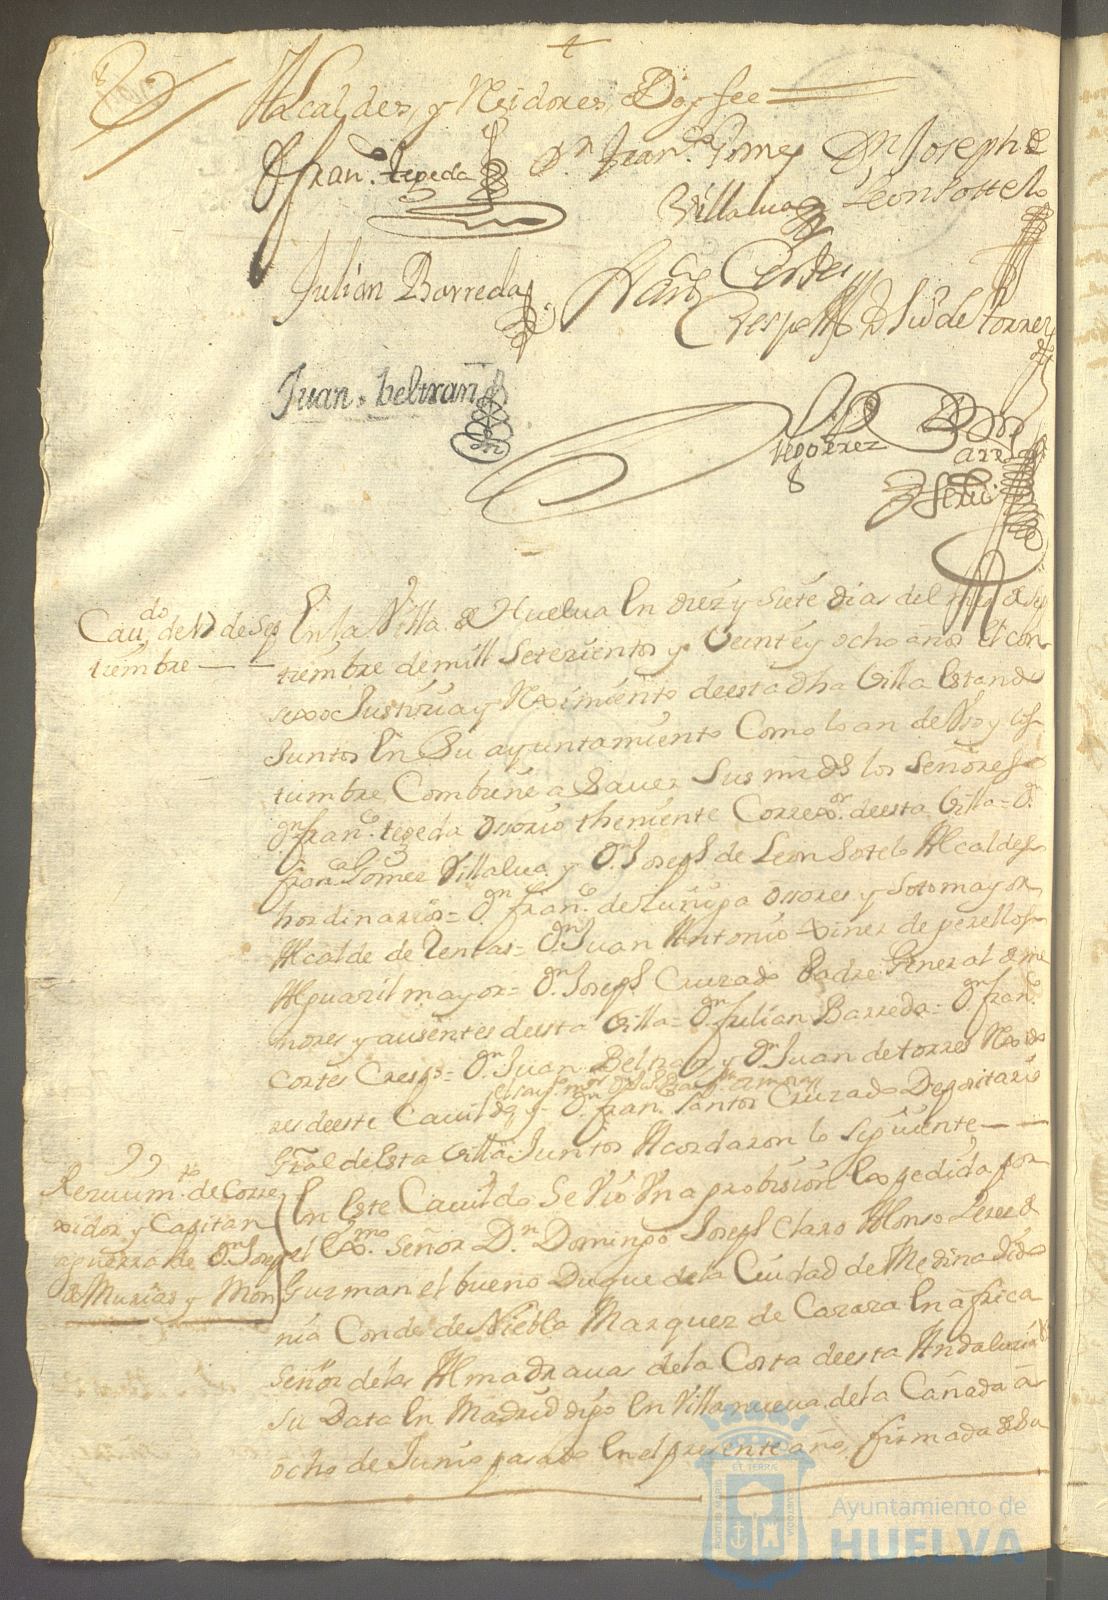 Alcaldes, y Rejidores, Doy fee
Dn Franco. tepeda
Dn Franco. Gomez
Villalua
Dn Joseph de
Leon sottelo
Julian Barreda
Franco Cortes
Crespo
Dn Juo de torres
Juan. beltran
Cauido de 17 de Sep
tiembre
En la Villa de Huelua En diez y siete dias del mes de sep
tiembre de mill Setezientos y Veinte y ocho años el con
sexo Justizia y Reximiento de esta dha Villa Estando
Juntos En Su ayuntamiento Como lo an de Vso y cos
tumbre, Combiene a Sauer Sus mrds los Señores
Dn franco. tepeda Ossorio theniente Correxor. de esta Villa = Dn
franco Gomez Villalua y Dn Joseph de Leon Sotelo Alcaldes
hordinarios = Dn franco. de Zuñiga Ossores y Sotomayor
Alcalde de Rentas = Dn Juan Antonio Xinez de perellos
Alguazil mayor = Dn Joseph Cruzado Padre General de me
nores y ausentes de esta Villa = Dn Julian Barreda = Dn franco
Cortes Crespo = Dn Juan Beltran y Dn Juan de torres Rexido
res de este Cauildo y Dn fran. santos Cruzado Depositario
Gral de Esta Villa Juntos Acordaron lo siguiente
Reziuimto. de Corre
xidor y Capitan
aguerra de Dn Josep
de Murias y Mon
En Este Cauildo Se Vio Vna probision Expedida por
el Exmo. Señor Dn Domingo Joseph Claro Alonso Perez de
Guzman el bueno Duque de la Ciudad de Medina Sido
nia Conde de Niebla Marquez de Cazaza En africa
Señor de las Almadrauas de la Costa de esta Andaluzia
Su Data En Madrid digo En Villanueua de la Cañada a
ocho de Junio pasado En el presente año, firmada de Su
Ayuntamiento de
HUELVA